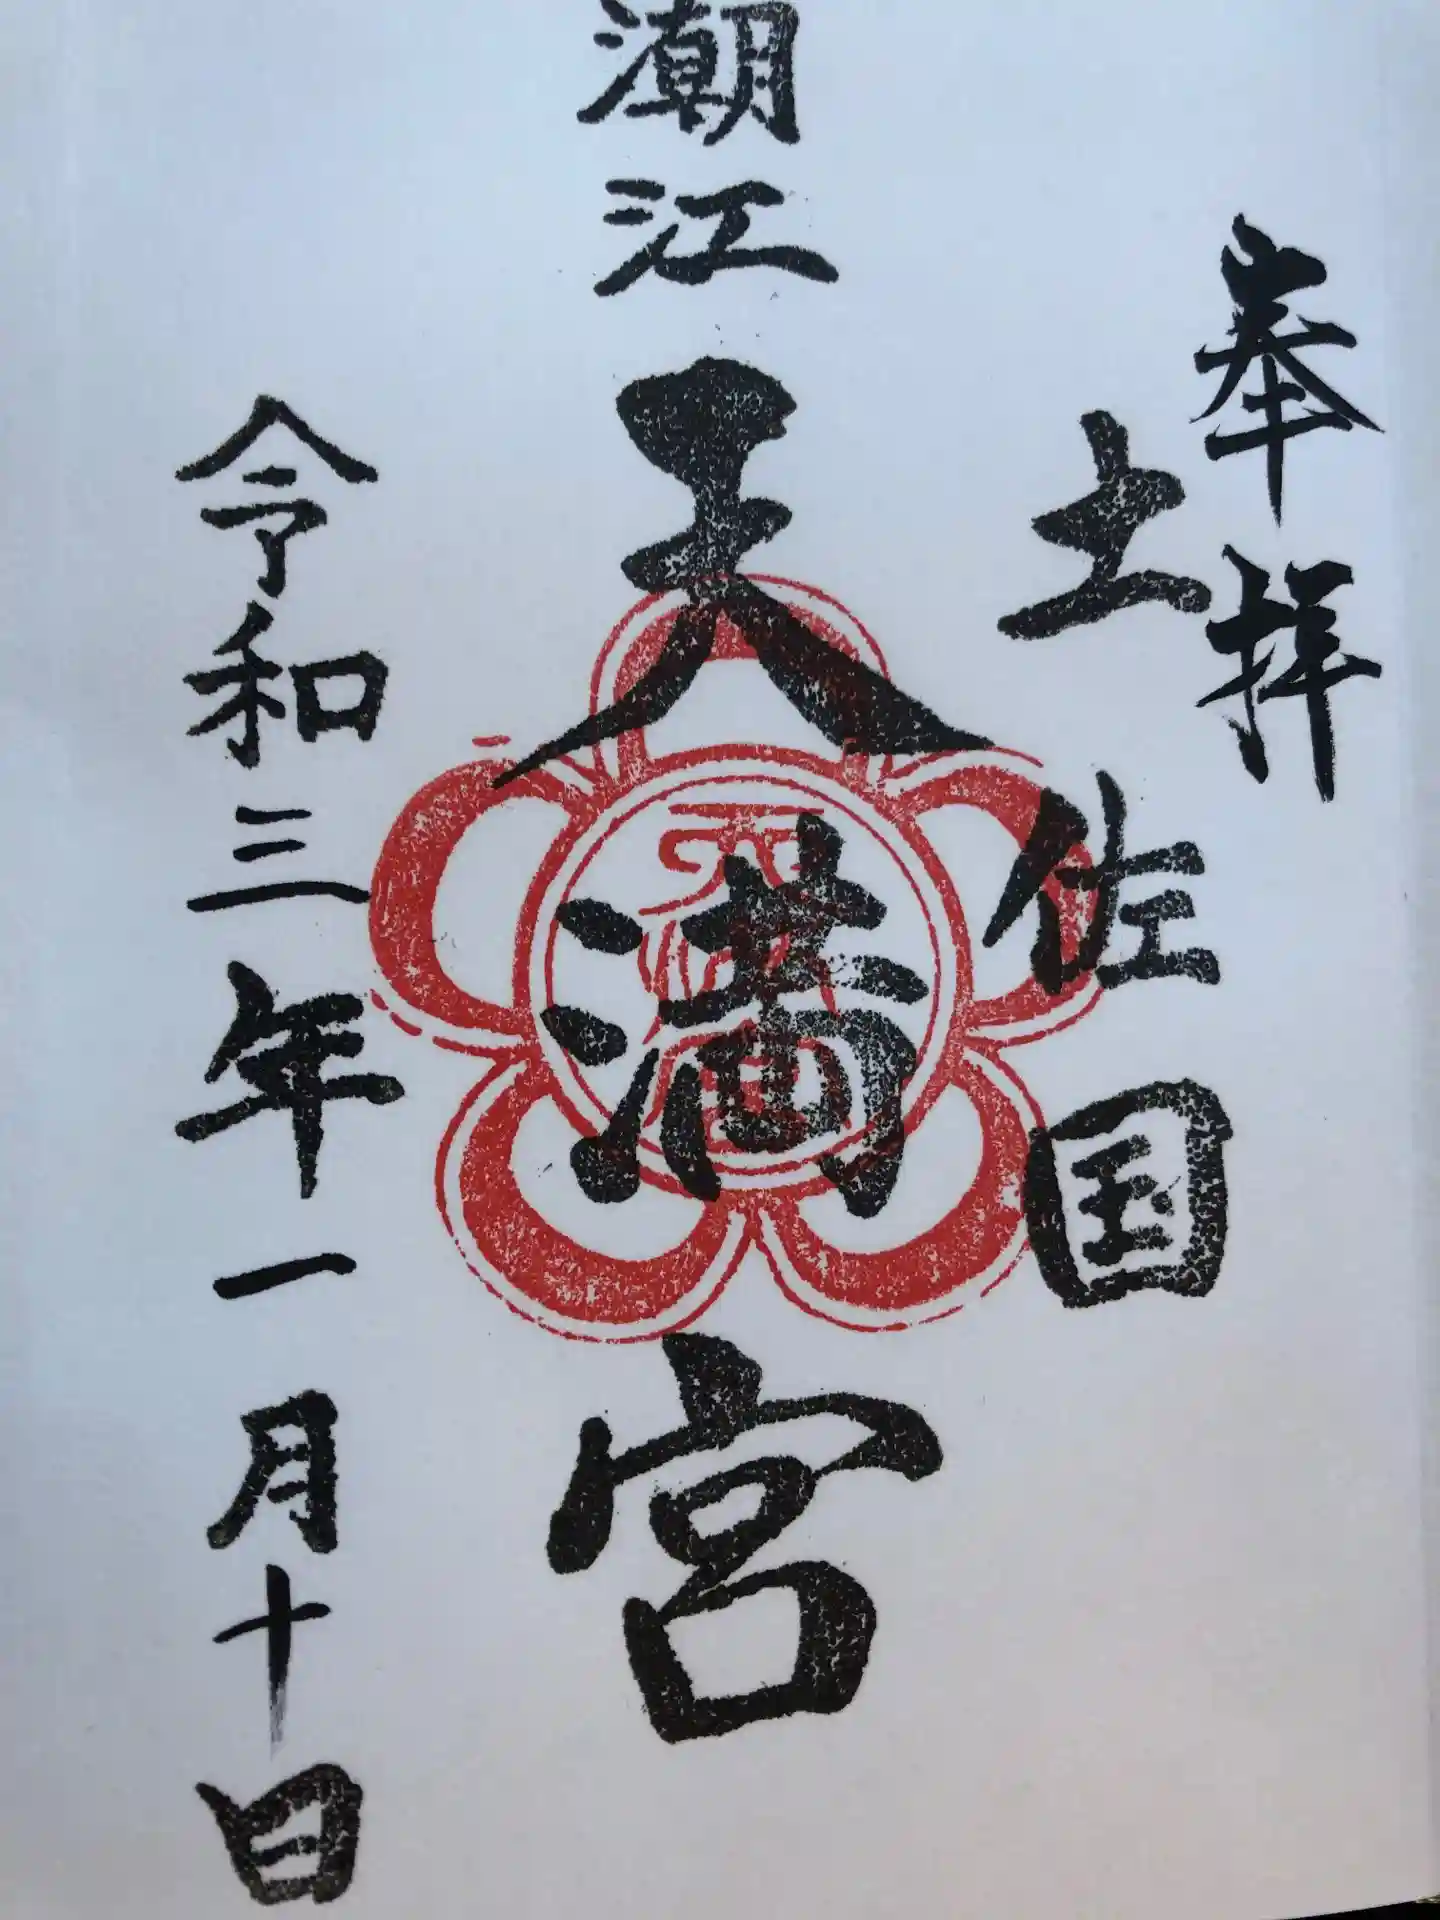 奉拝
土佐国
潮江天満宮
令和三年一月十日